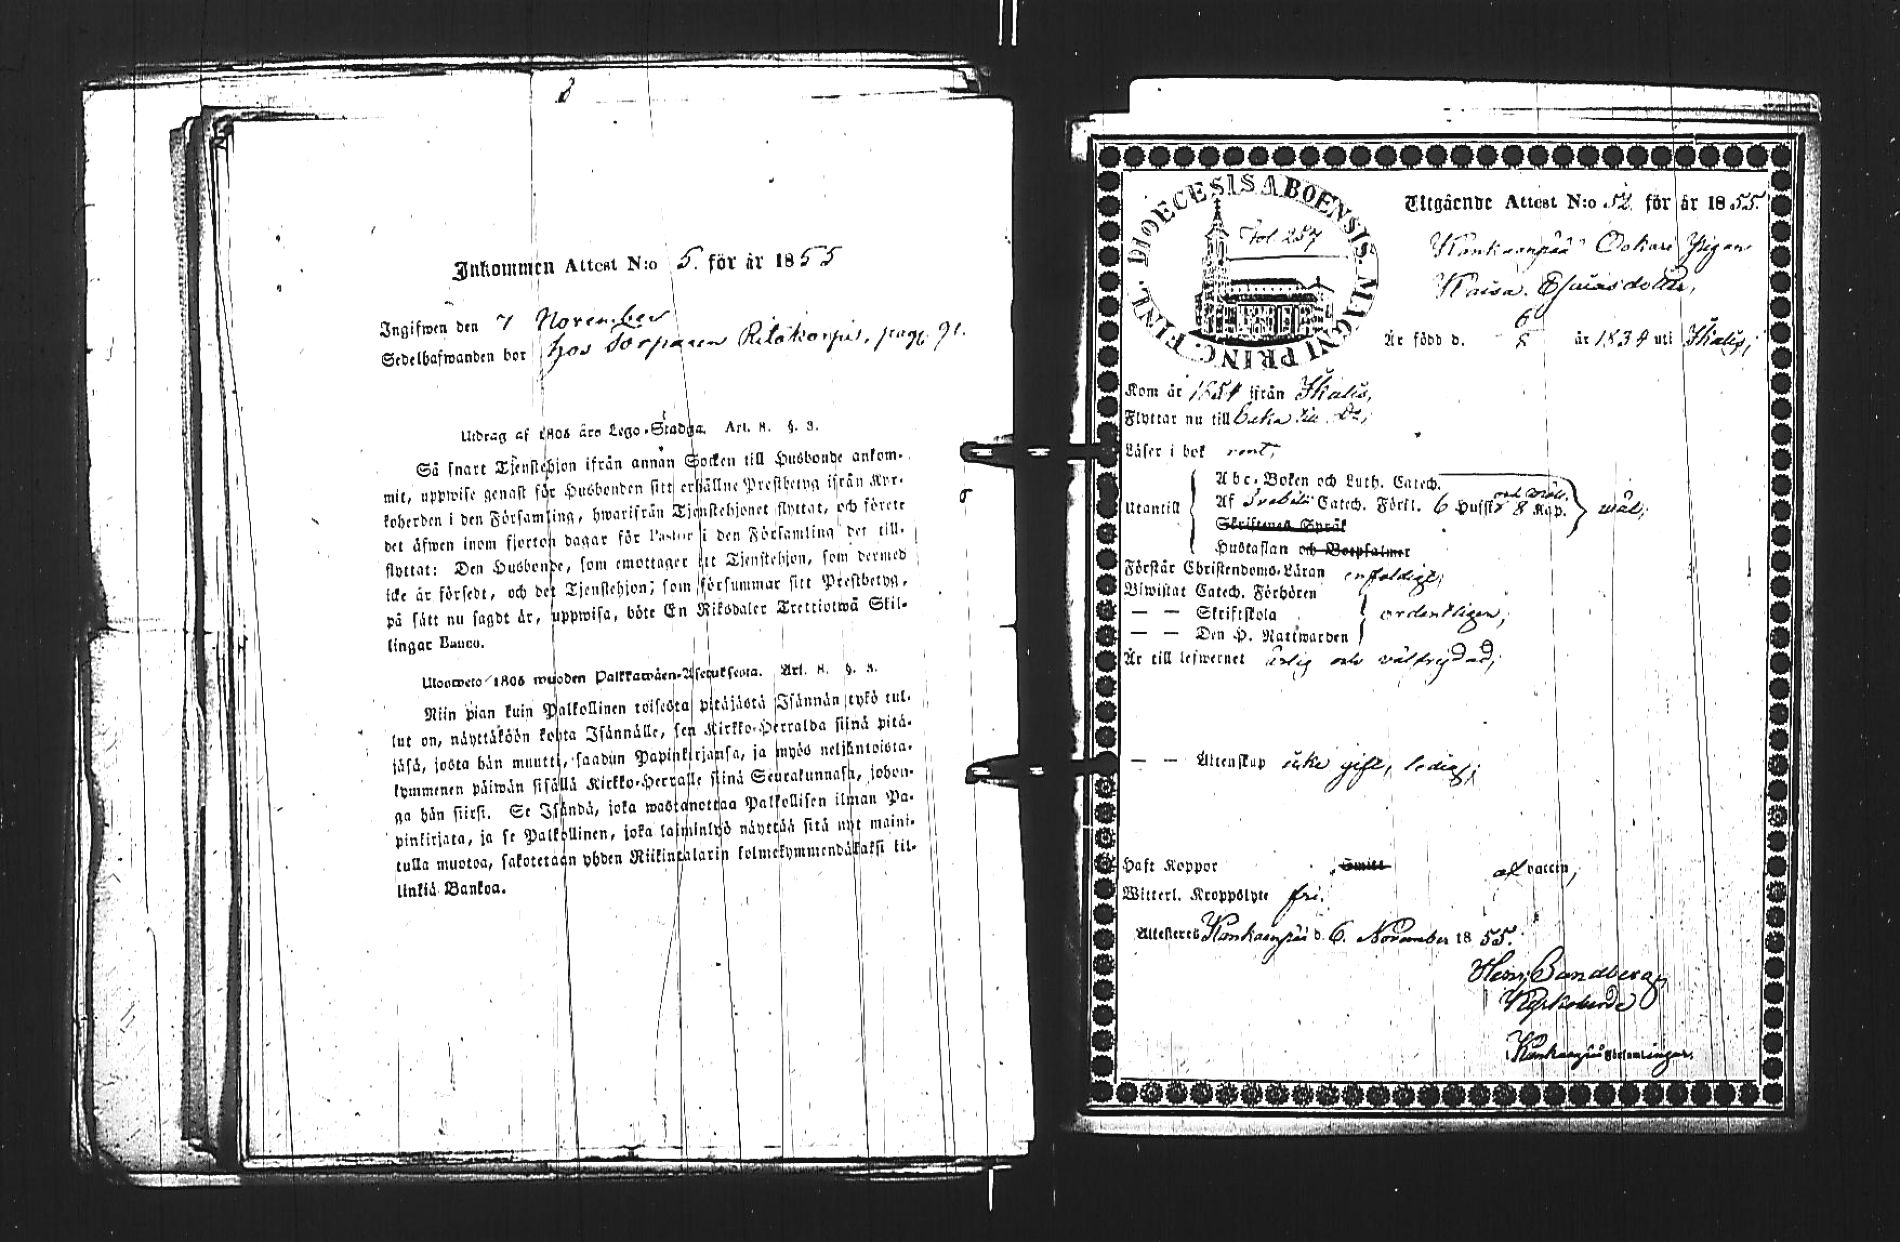 Inkommen Attest N:o 5. för år 1855
Ingifwen den 7 November
Sedelhafwanden bor hos Torparen Ritokorpis, pag. 91.
Utdrag af 1805 års Lego-Stadga. Art. 8. §. 3.
Så snart Tjenstehjon ifrån annan Socken till Husbonde ankom-
mit, uppwise genast för Husbonden sitt erhållne Prestbetyg ifrån Kyr-
koherden i den Församling, hwarifrån Tjenstehjonet flyttat, och förete
det äfwen inom fjorton dagar för Pastor i den Församling det till-
flyttat: Den Husbonde, som emottager ett Tjenstehjon, som dermed
icke är försedt, och det Tjenstehjon, som försummar sitt Prestbetyg,
på sätt nu sagdt är, uppwisa, böte En Riksdaler Trettiotwå Skil-
lingar Banco.
Uloswete 1805 wuoden Palkkawäen-Asetuksesta. Art. 8. §. 3.
Niin pian kuin Palkollinen toisesta pitäjästä Isännän tykö tul-
lut on, näyttäköön kohta Isännälle, sen Kirkko-Herralda siinä pitä-
jäsä, josta hän muutti, saadun Papinkirjansa, ja myös neljäntoista-
kymmenen päiwän sisällä Kirkko-Herralle siinä Seurakunnasa, johon-
ga hän siirsi. Se Isändä, joka wastanottaa Palkollisen ilman Pa-
pinkirjata, ja se Palkollinen, joka laiminlyö näyttää sitä nyt maini-
tulla muotoa, sakotetaan yhden Riikintalarin kolmekymmendäkaksi kil-
linkiä Bankoa.
DIOECESIS ABOENSIS. MAGNI PRINC. FINL.
Fol 257
Utgående Attest N:o 52. för år 1855.
Kankaanpää Pigan
Kaisa Esaiasdotter,
Är född d. 6/8 år 1834 uti Ikalis,
Kom år 1854 ifrån Ikalis,
Flyttar nu till baka till Do,
Läser i bok rent,
Utantill
Abc-Boken och Luth. Catech.
Af Svebilii Catech. Förkl. 6 Hufst. 8 Kap. wäl,
Skriftenes Språk
Hustaflan och Botpsalmer
Förstår Christendoms-Läran enfaldigt,
Biwistat Catech. Förhören
— — Skriftskola ordentligen,
— — Den H. Nattwarden
Är till lefwernet ärlig och välfrejdad,
— — Äktenskap icke gift, ledig,
Haft Koppor Smitt af vaccin,
Witterl. Kroppslyte fri.
Attesteres Kankaanpää d. 6. November 1855.
Sandberg
Kyrkoherde
Kankaanpää Församlingar.